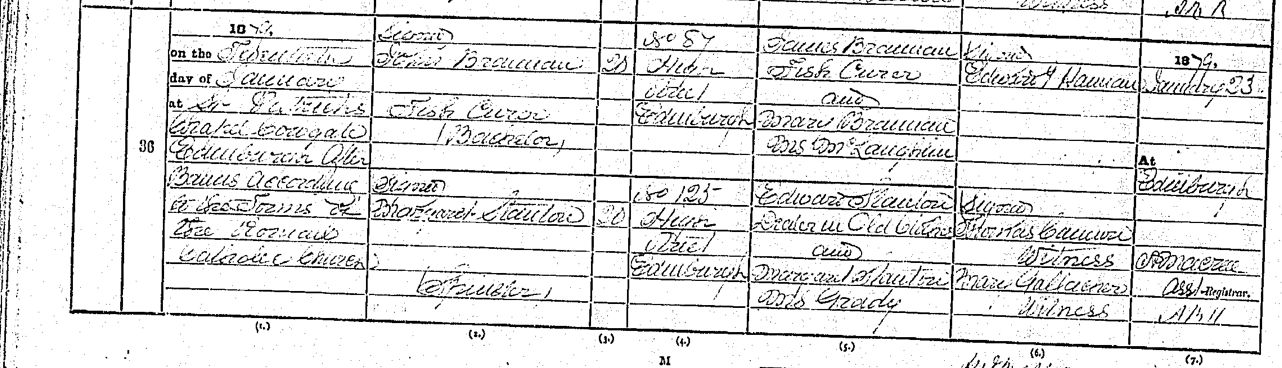 Witness
1879.
on the Twentieth
day of January
at St Patricks
Chapel Cowgate
Edinburgh After
Banns according
to the Forms of
the Roman
Catholic Church
36
Signed
John Brannan
Fish Curer
(Bachelor)
Signed
Margaret Stanton
(Spinster)
20
No 87
High
Street
Edinburgh
No 125
High
Street
Edinburgh
James Brannan
Fish Curer
and
Mary Brannan
MS McLaughlin
Edward Stanton
Dealer in Old
and
Margaret Stanton
MS Grady
Signed
Edward Hannan
Signed
Thomas
Witness
Mary Gallacher
Witness
1879,
January 23
At
Edinburgh
Asst Registrar.
(1.) (2.) (3.) (4.) (5.) (6.) (7.)
M